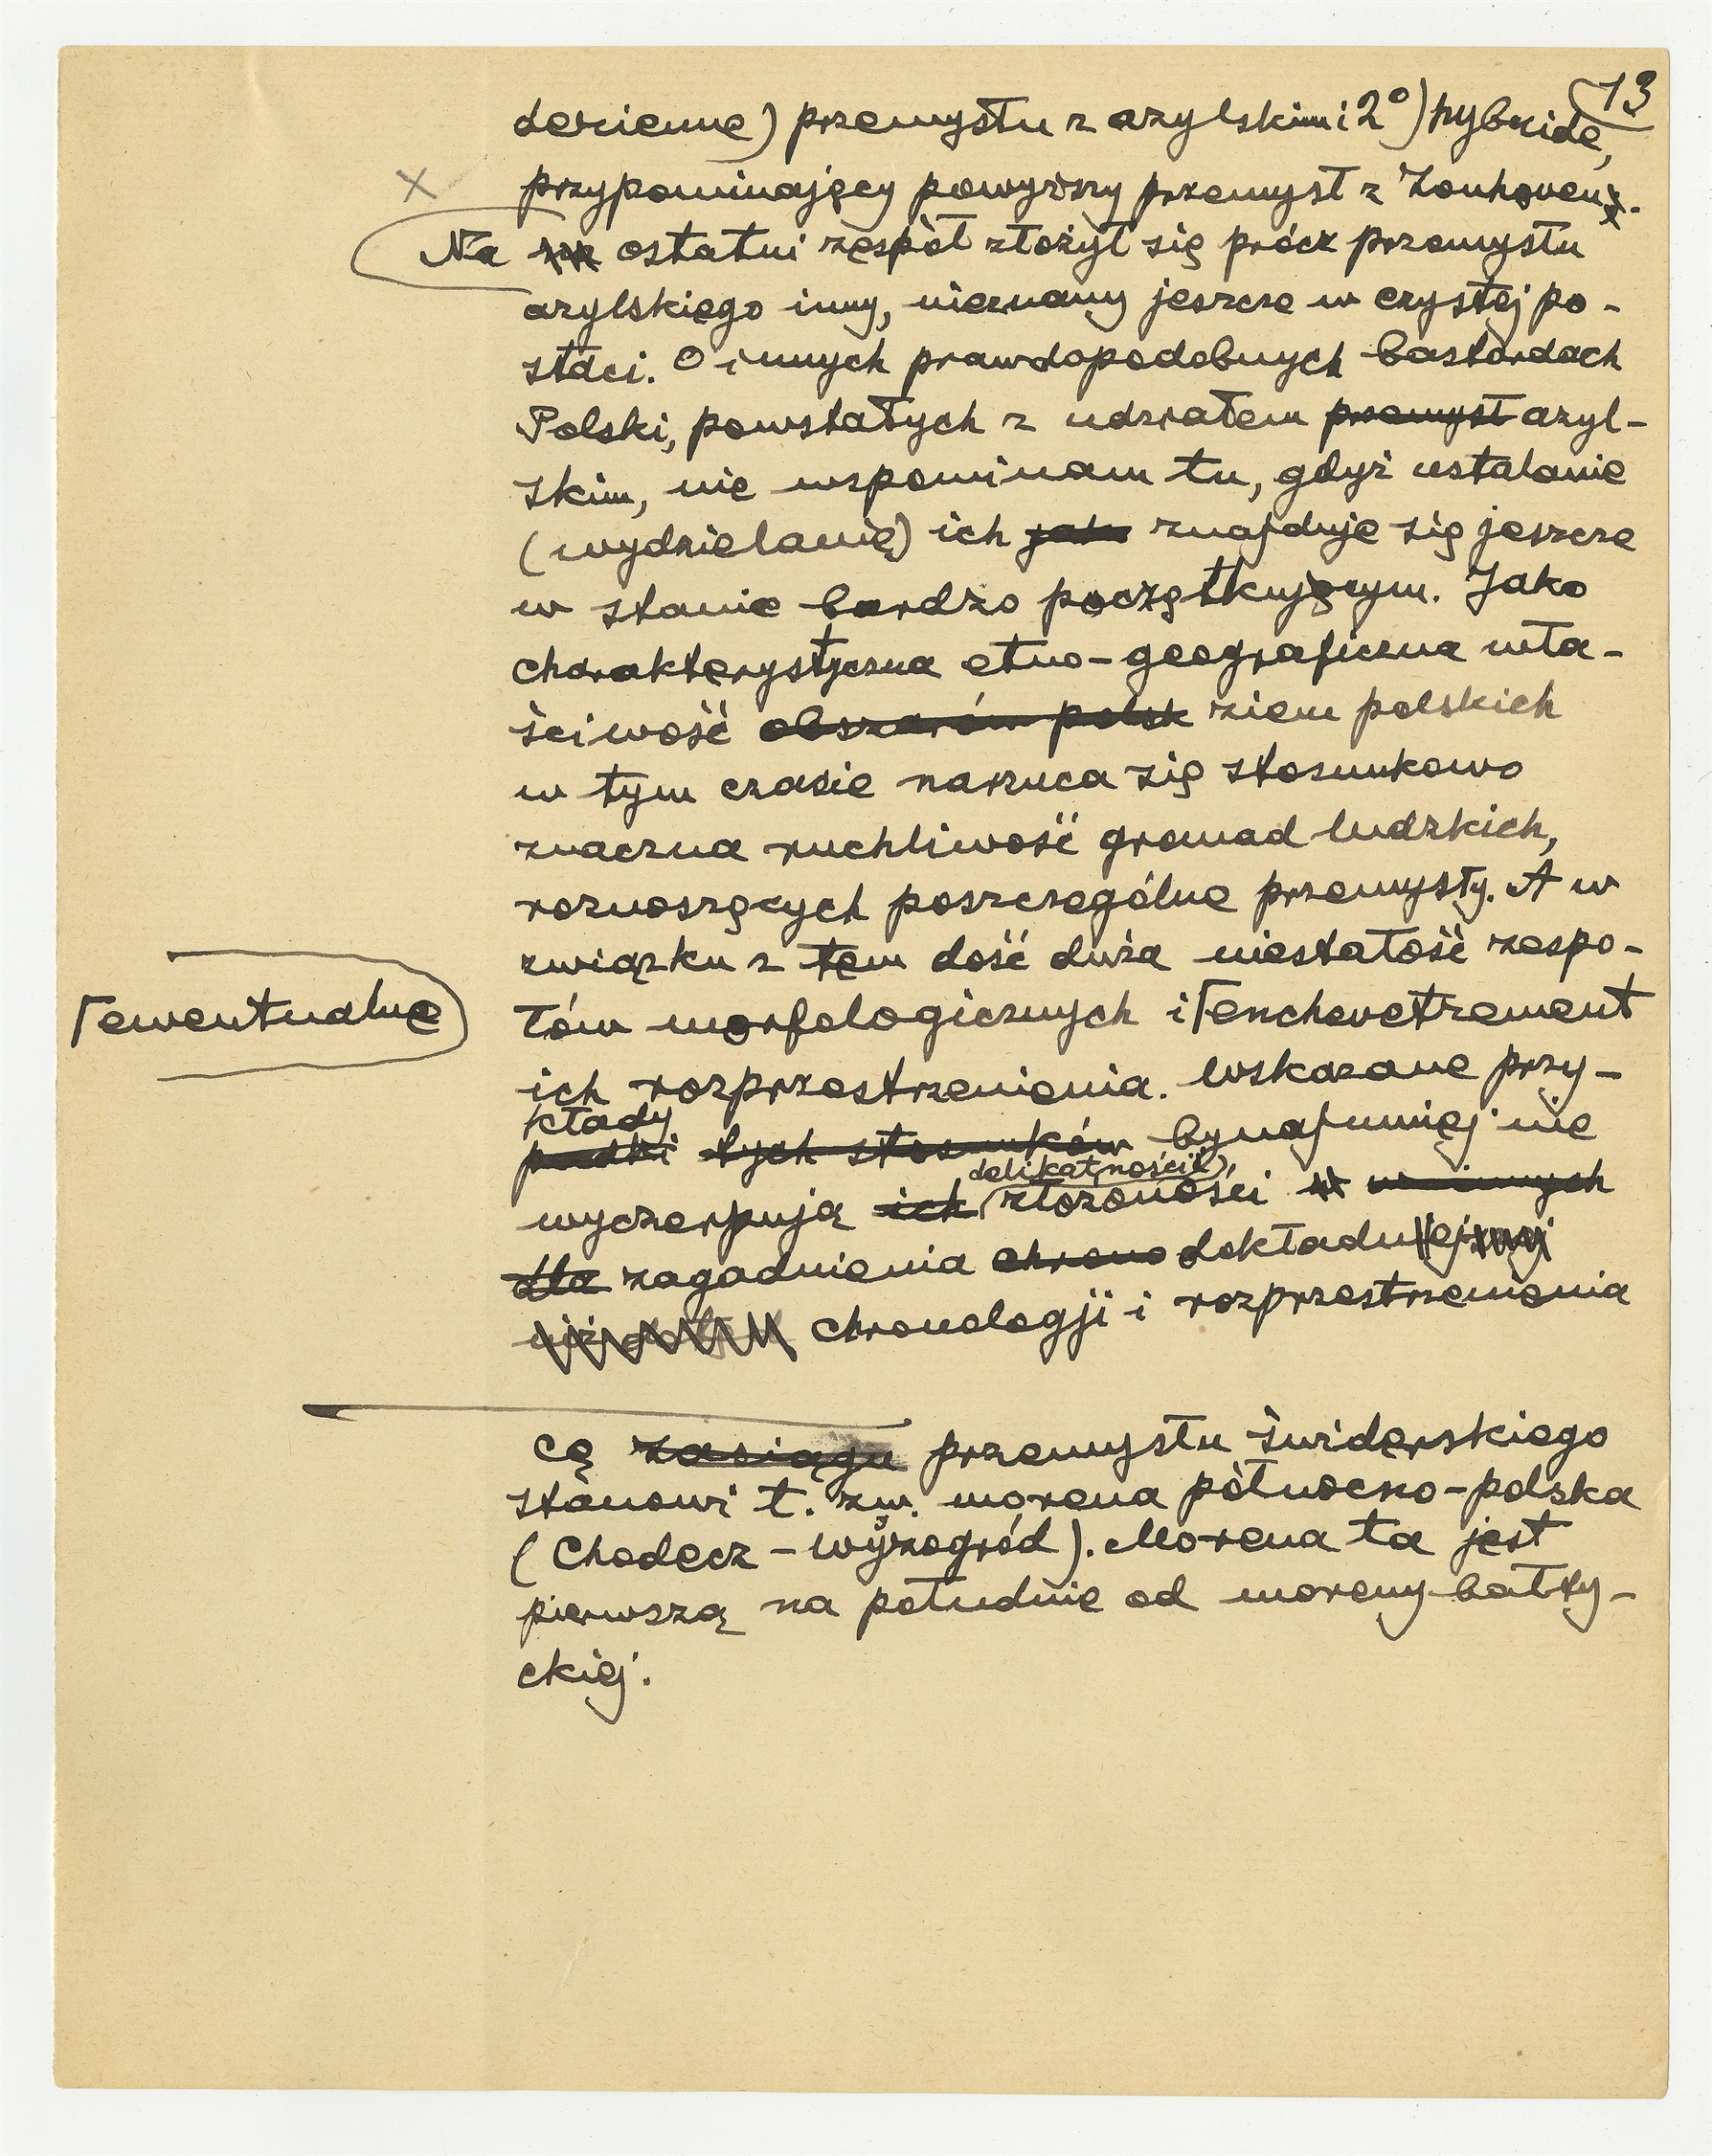 13
dericenne) przemysłu z azylskim i 2°) hybridę,
przypominający powyższy przemysł z Zonhoven.
Na ostatni zespół złożył się prócz przemysłu
azylskiego inny, nieznany jeszcze w czystej po-
staci. O innych prawdopodobnych bastardach
Polski, powstałych z udziałem przemysł azyl-
skim, nie wspominam tu, gdyż ustalanie
(wydzielanie) ich jak znajduje się jeszcze
w stanie bardzo początkującym. Jako
charakterystyczna etno-geograficzna wła-
ściwość obszarów polsk ziem polskich
w tym czasie narzuca się stosunkowo
znaczna ruchliwość gromad ludzkich,
roznoszących poszczególne przemysły. A w
związku z tem dość duża niestałość zespo-
łów morfologicznych i Γenchevetrement
Γewentualne
ich rozprzestrzenienia. Wskazane przy-
kłady
padki tych stosunków bynajmniej nie
delikatności i
wyczerpują ich złożoności w w innych
dla zagadnienia chrono dokładniej
chronologji i rozprzestrzenienia
cę zasiągu przemysłu świderskiego
stanowi t. zw. morena północno-polska
(Chodecz-Wyszogród). Morena ta jest
pierwszą na południe od moreny bałty-
ckiej.